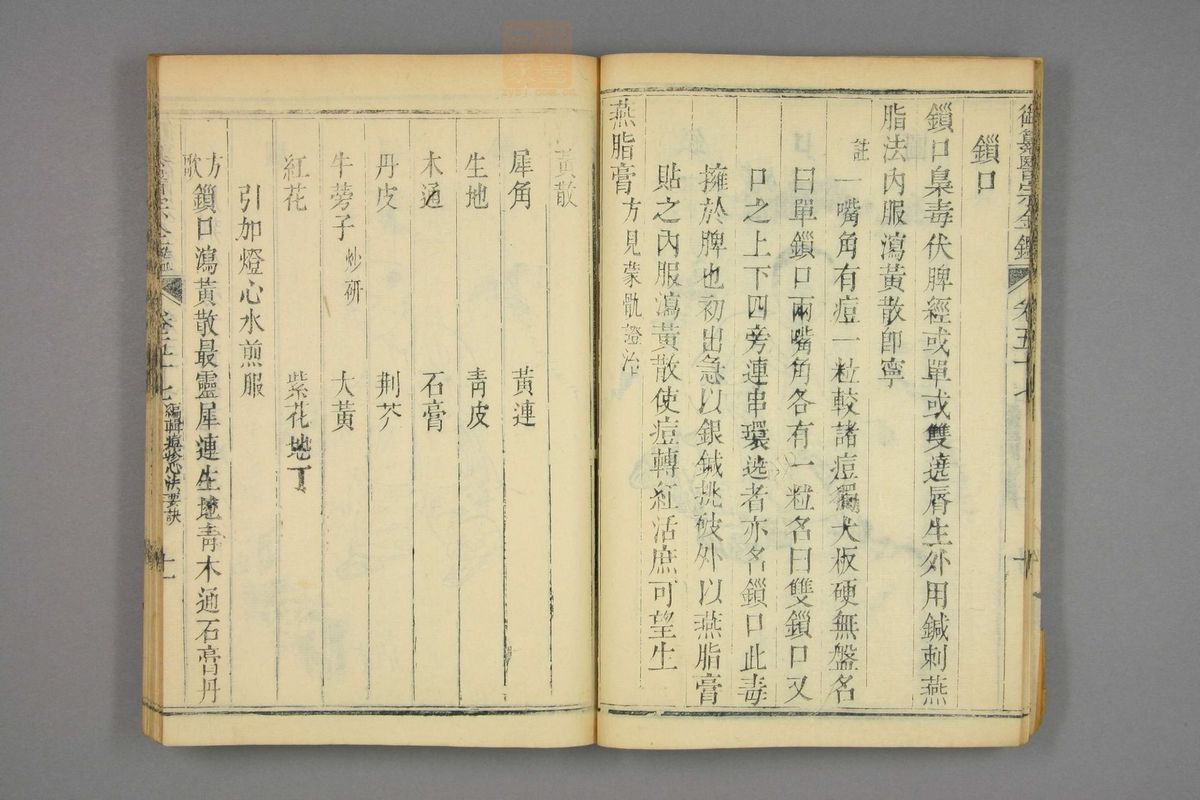 御纂醫宗金鑑 卷五十七 十
鎖口
鎖口梟毒伏脾經或單或雙遶唇生外用鍼刺燕
脂法內服瀉黃散卽寧
註一嘴角有痘一粒較諸痘獨大板硬無盤名
曰單鎖口兩嘴角各有一粒名曰雙鎖口又
口之上下四旁連串環遶者亦名鎖口此毒
擁於脾也初出急以銀鍼挑破外以燕脂膏
貼之內服瀉黃散使痘轉紅活庶可望生
燕脂膏方見蒙骩證治
黃散
犀角 黃連
生地 青皮
木通 石膏
丹皮 荆芥
牛蒡子炒研 大黃
紅花 紫花地丁
引加燈心水煎服
方歌鎖口瀉黃散最靈犀連生地青木通石膏丹
卷五十七 編輯痘疹心法要訣 十一